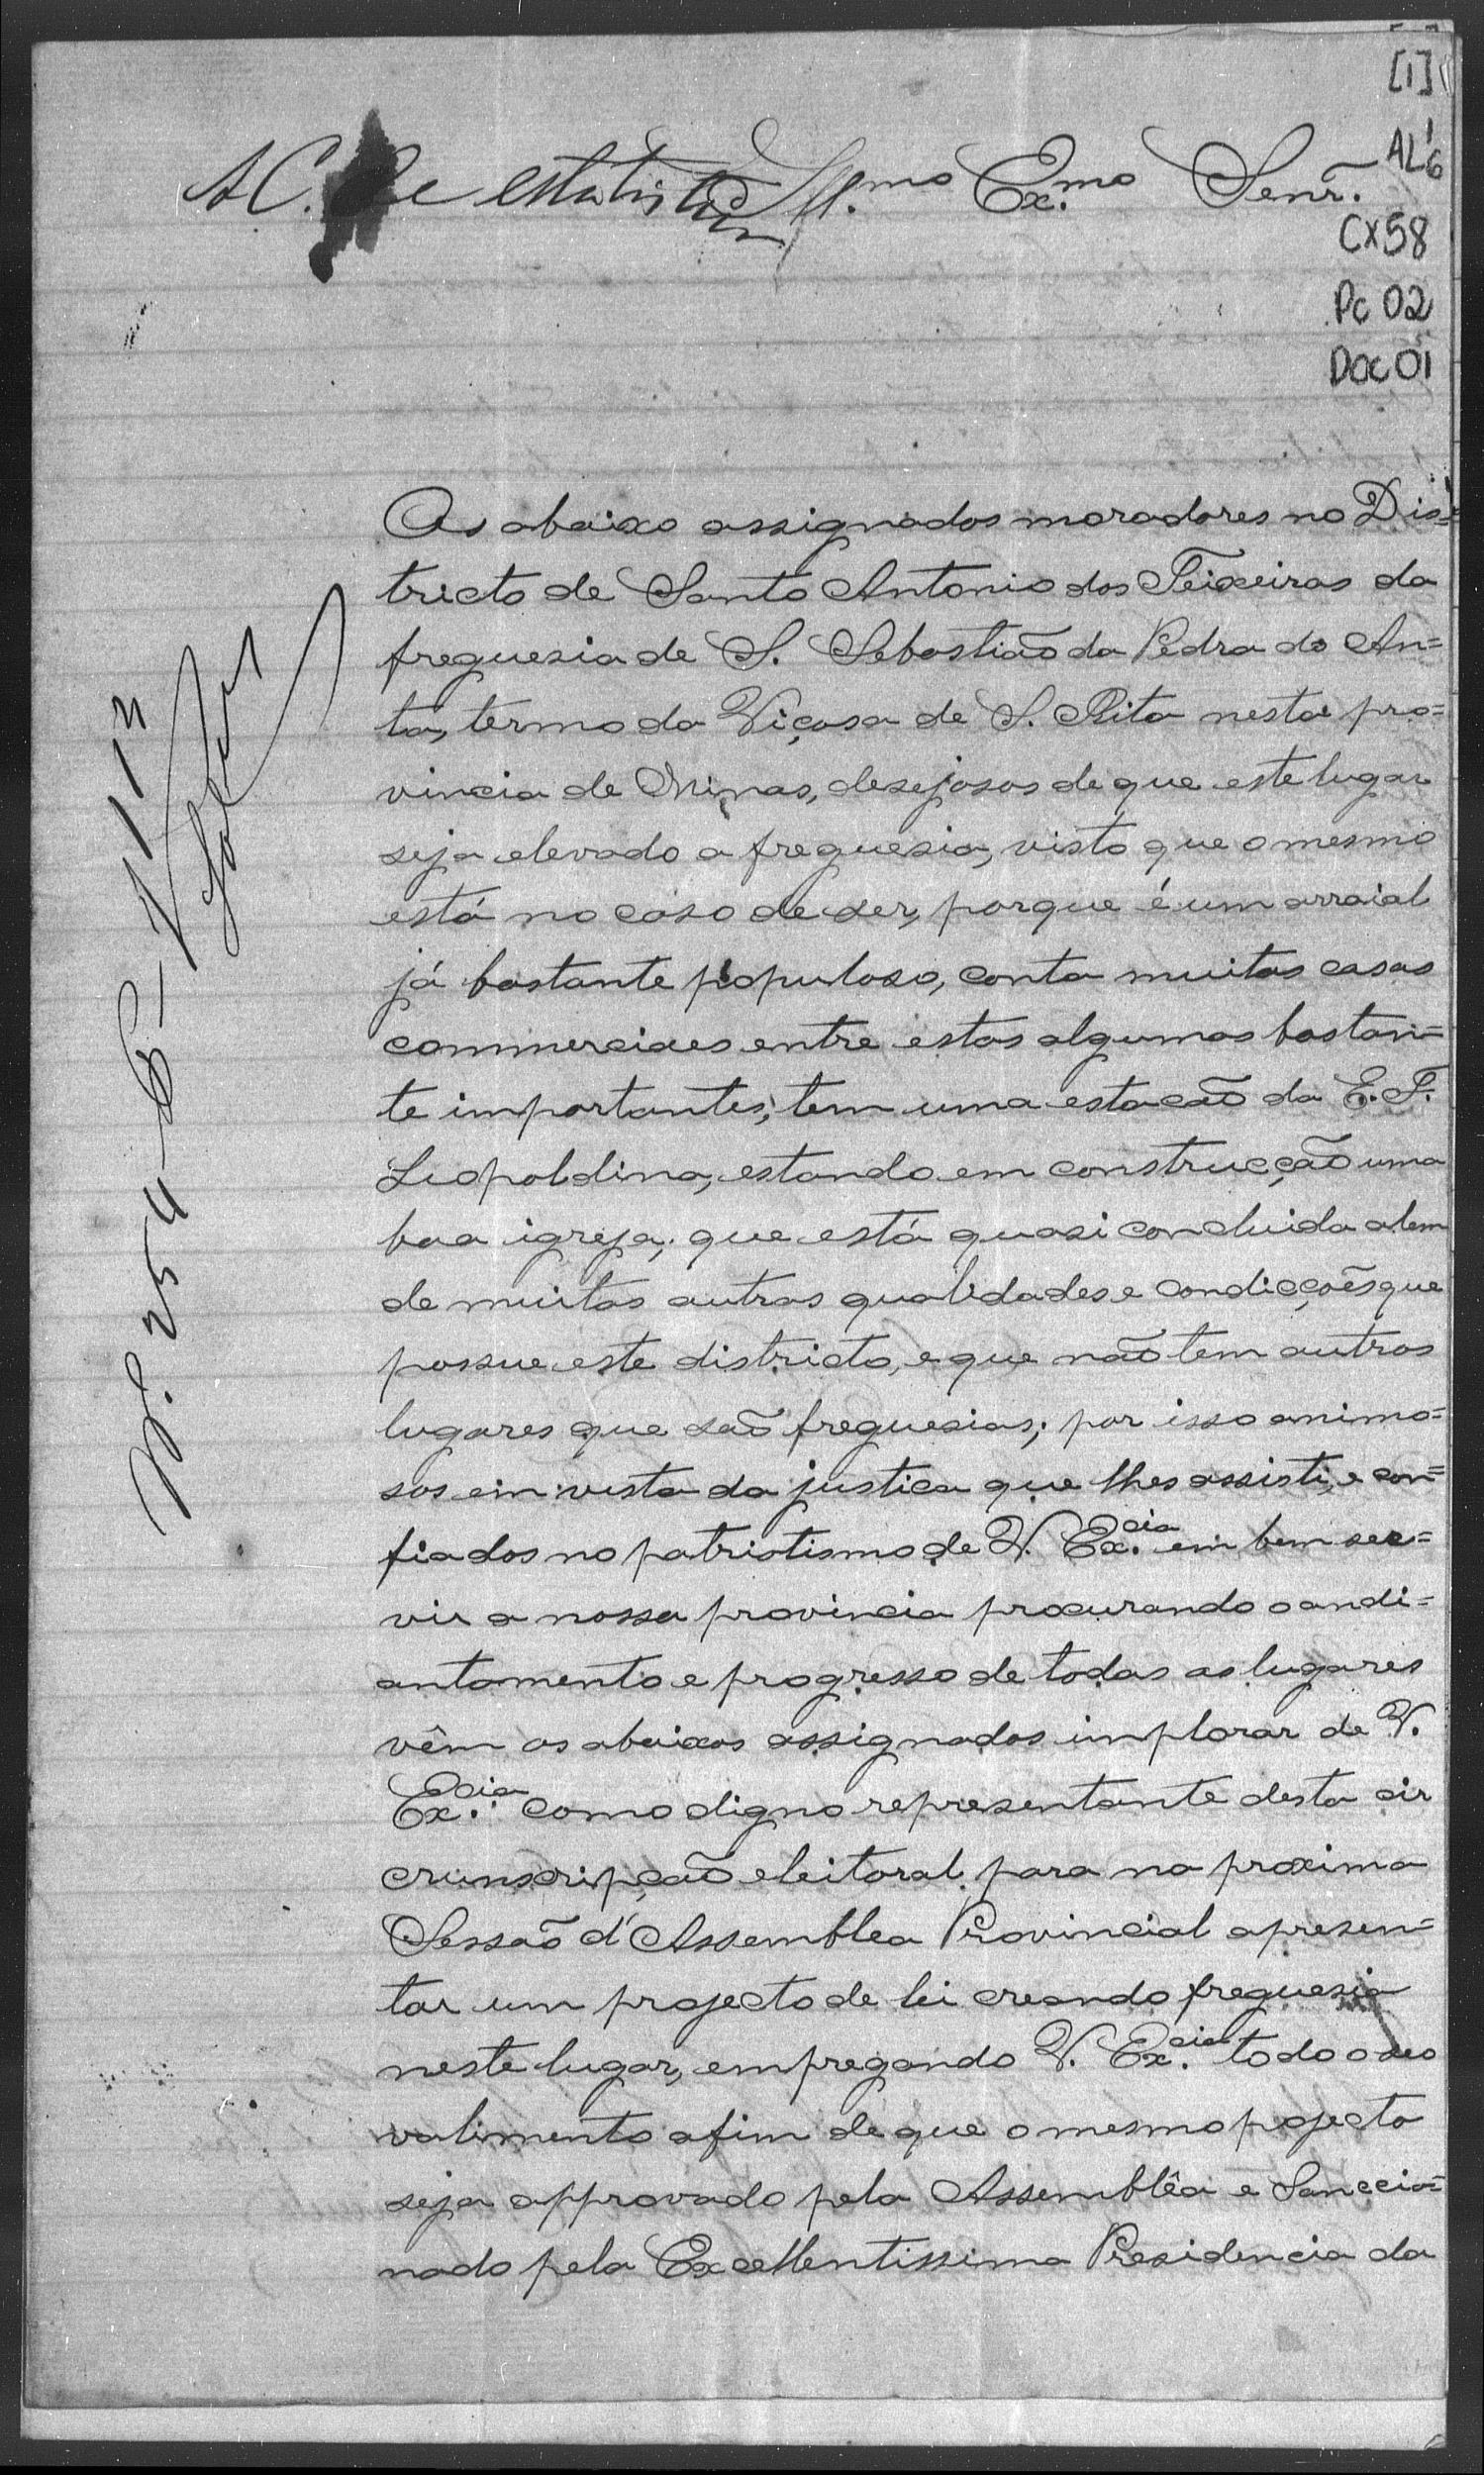 [1]
AL 1.6
CX 58
Pc 02
Doc 01
A C. de estatistica
Ill.mo Ex.mo Senr.
Os abaixo assignados moradores no Dis=
tricto de Santo Antonio dos Teixeiras da
freguesia de S. Sebastião da Pedra do An=
ta, termo da Viçosa de S. Rita nesta pro=
vincia de Minas, desejosos de que este lugar
seja elevado a freguesia, visto que o mesmo
está no caso de ser, porque é um arraial
já bastante populoso, conta muitas casas
commerciaes entre estas algumas bastan=
te importantes; tem uma estacão da E. F.
Leopoldina, estando em construcção uma
boa igreja, que está quasi concluida alem
de muitas outras qualidades e condicções que
possue este districto, e que não tem outros
lugares que são freguesias; por isso animo=
sos em vista da justica que lhes assisti, e con=
fiados no patriotismo de V. Ex.cia em bem ser=
vir a nossa provincia procurando o andi=
antamento e progresso de todos os lugares
vêm os abaixos assignados implorar de V.
Ex.cia como digno representante desta cir
crunscripção eleitoral para na proxima
Sessão d'Assemblea Provincial apresen=
tar um projecto de lei creando freguesia
neste lugar, empregando V. Ex.cia todo o seo
valimento afim de que o mesmo pojecto
seja approvado pela Assemblêa e Sanccio=
nado pela Excellentissima Presidencia da
N. 254